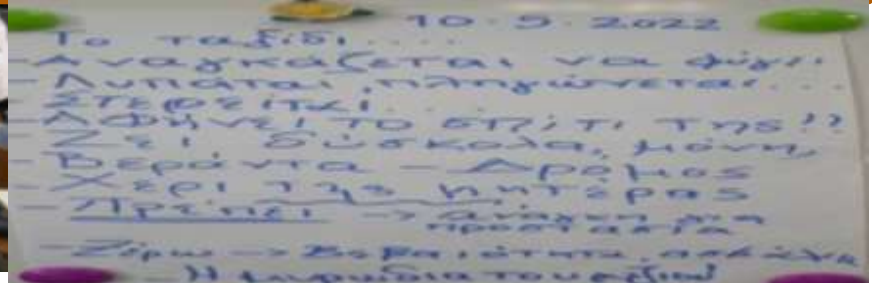 10.9.2022
Το ταξίδι....
- Αναγκάζεται να φύγει
- Λυπάται, πληγώνεται...
- Στερείται...
- Αφήνει το σπίτι της!!
- Ζει δύσκολα, μόνη,
- Βεράντα - Δρόμος
- Χέρι της μητέρας
- Πρέπει → ανάγκη για
προστασία
- Ζέρω → Βεβαιότητα,
- Η μυρωδιά του